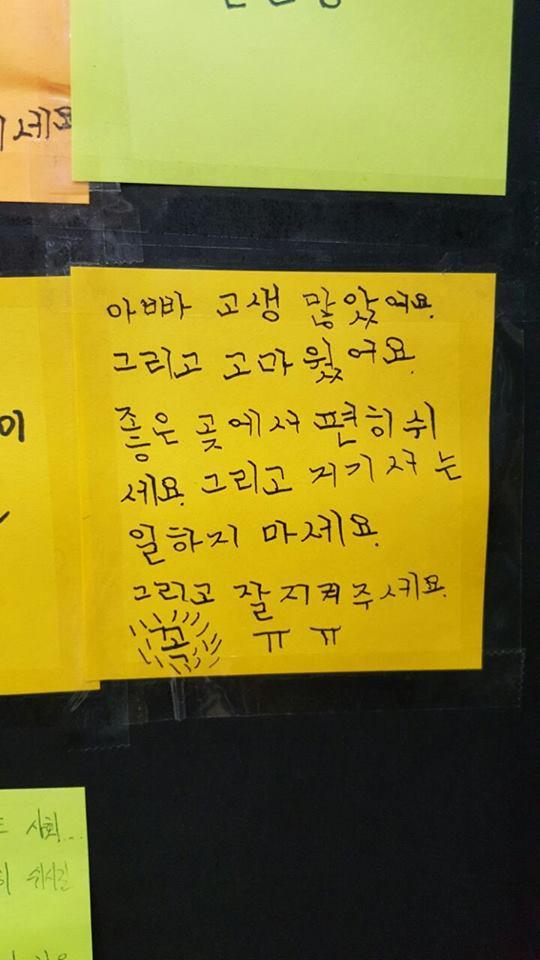 세요
아빠 고생 많았어요.
그리고 고마웠어요.
좋은 곳에서 편히 쉬
세요. 그리고 저기서는
일하지 마세요.
그리고 잘 지켜주세요.
꼭 ㅠㅠ
이
사회...
쉬시길